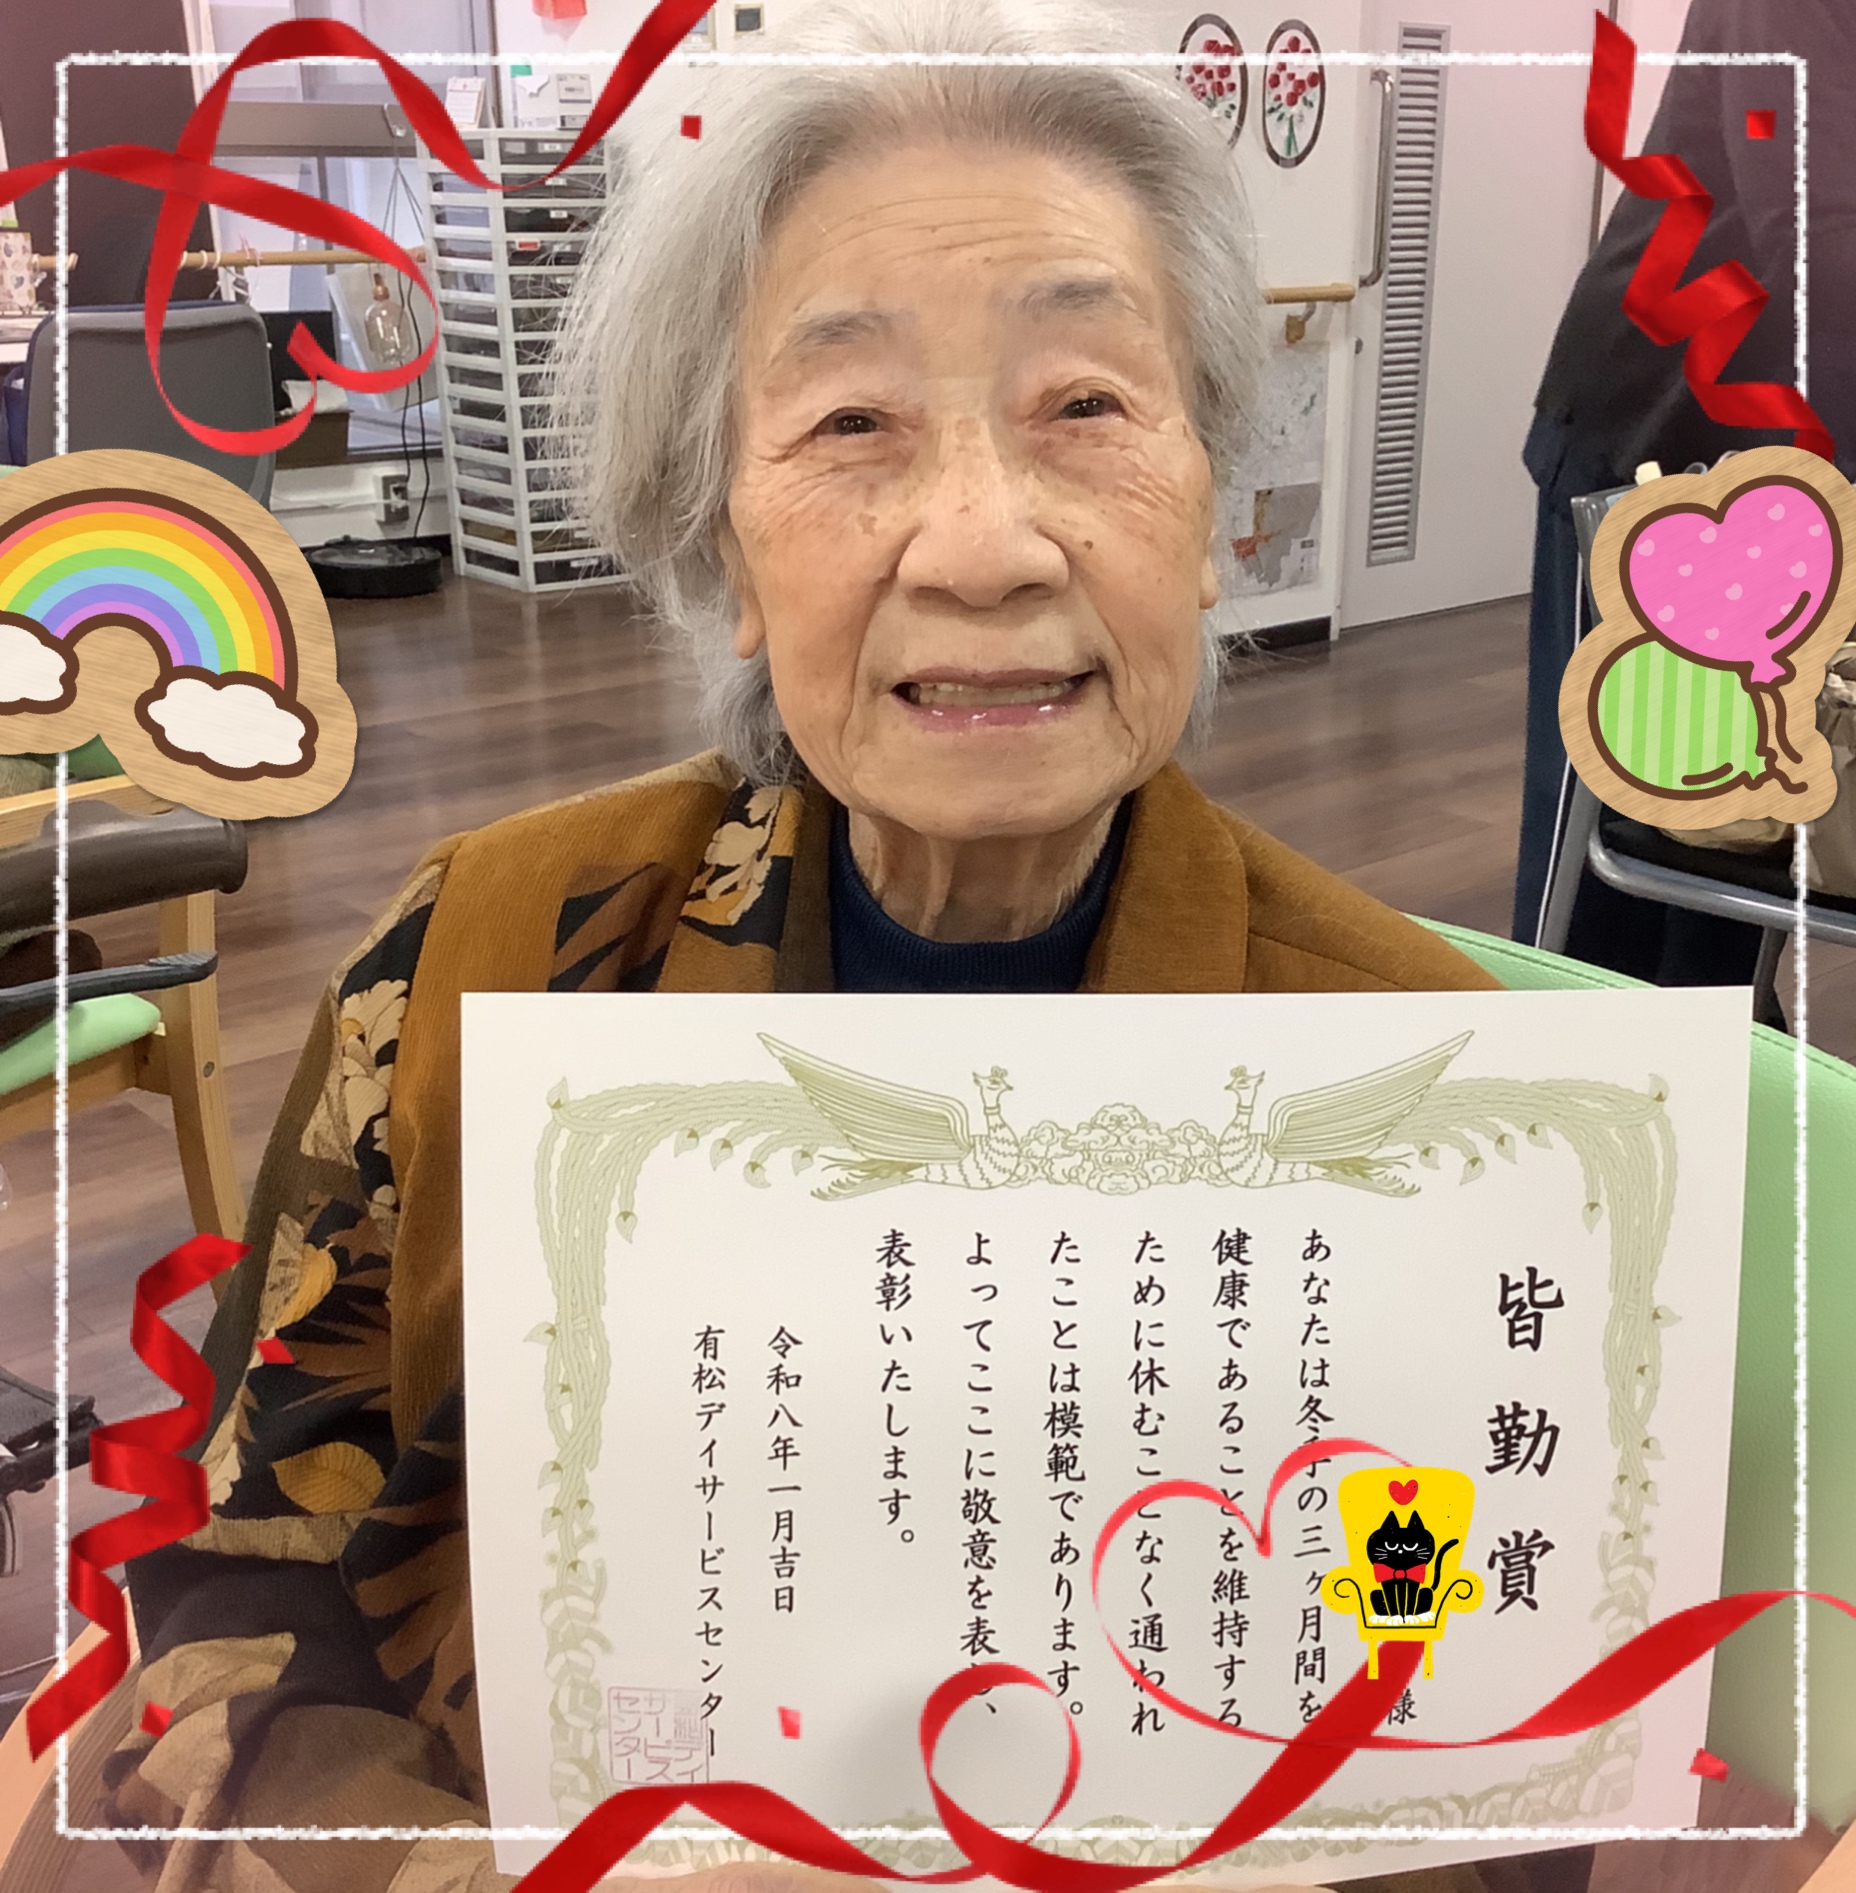 皆勤賞
様
あなたは冬季の三ヶ月間を
健康であることを維持する
ために休むことなく通われ
たことは模範であります。
よってここに敬意を表し、
表彰いたします。
令和八年一月吉日
有松デイサービスセンター